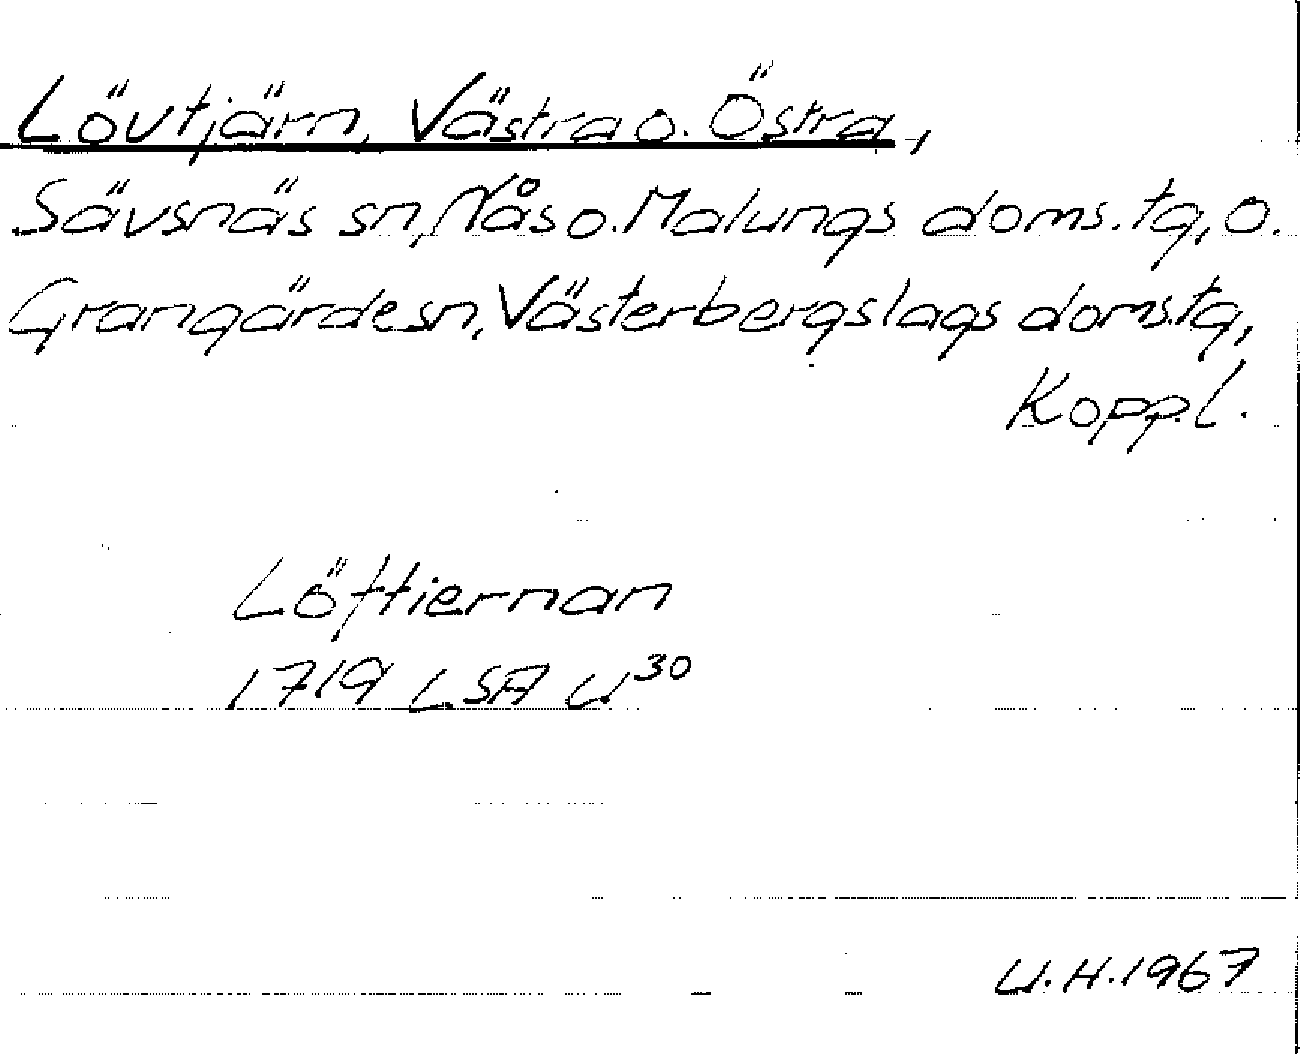 Lövtjärn, Västra o. Östra,
Sävsnäs sn, Nås o. Malungs doms.tg, o.
Grangärde sn, Västerbergslags doms.tg,
Kopp.l.
Löftiernan
1719 LSA U³⁰
U.H.1967